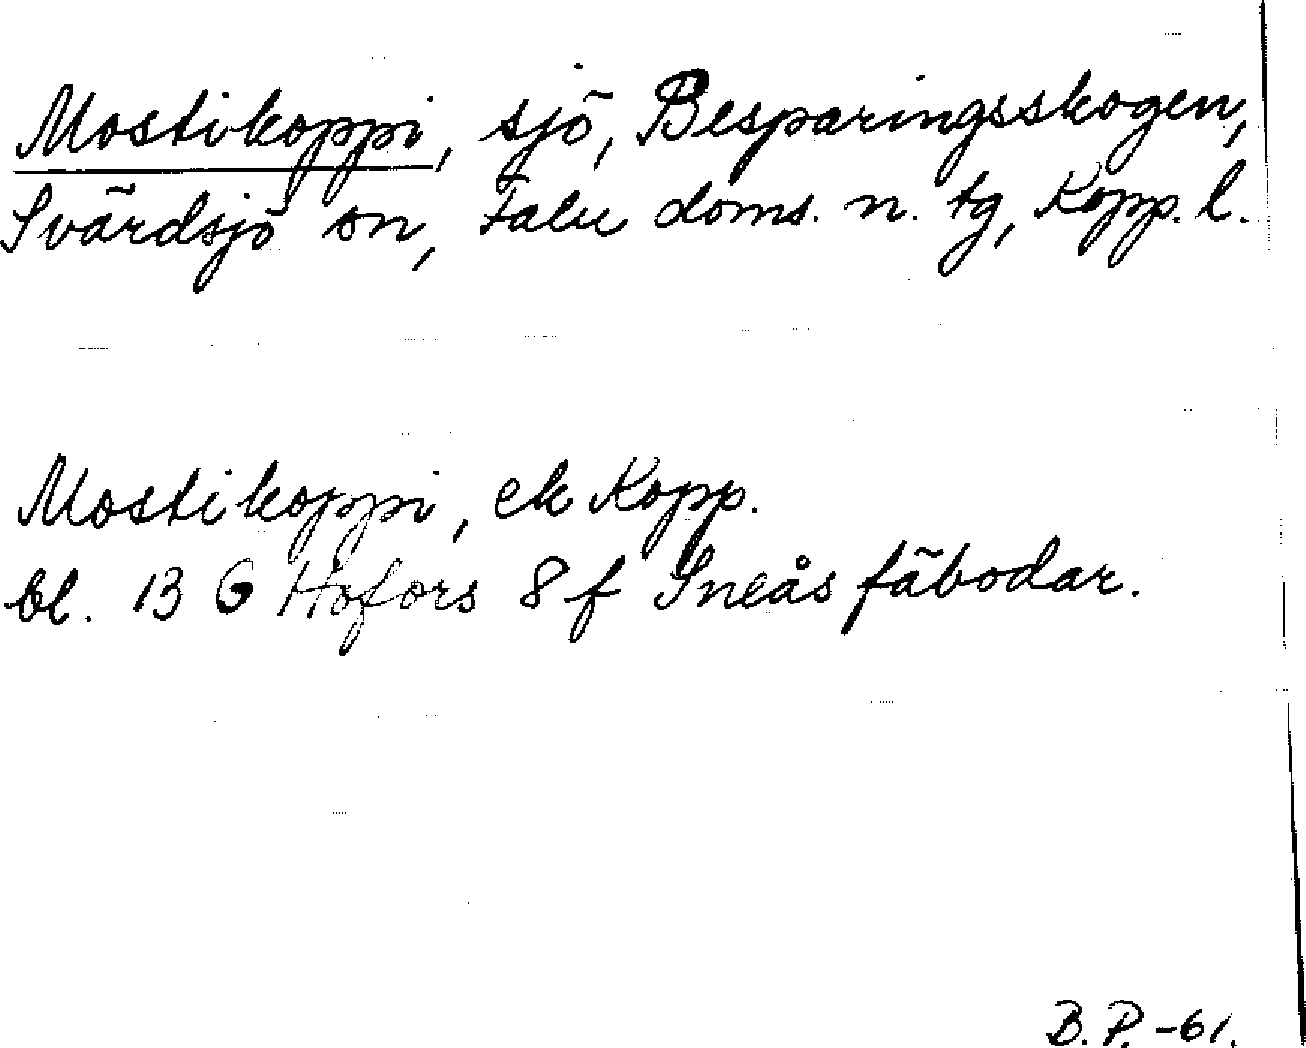 Mostikoppi, sjö, Besparingsskogen,
Svärdsjö sn, Falu doms. n. tg, Kopp. l.
Mostikoppi, ek Kopp.
bl. 13 G Hofors 8 f Sneås fäbodar.
B.P. -61.